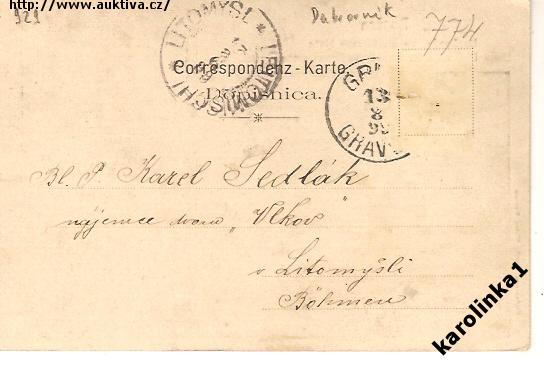 http://www.auktiva.cz/
929
Dubrovnik
774
LITOMYŠL * LEITOMISCHL
Correspondenz-Karte.
Dopisnica.
GRA
13
8
99
GRAV
Bl. P. Karel Sedlák
nájemce dvora „Vlkov"
v Litomyšli
Böhmen
karolinka1